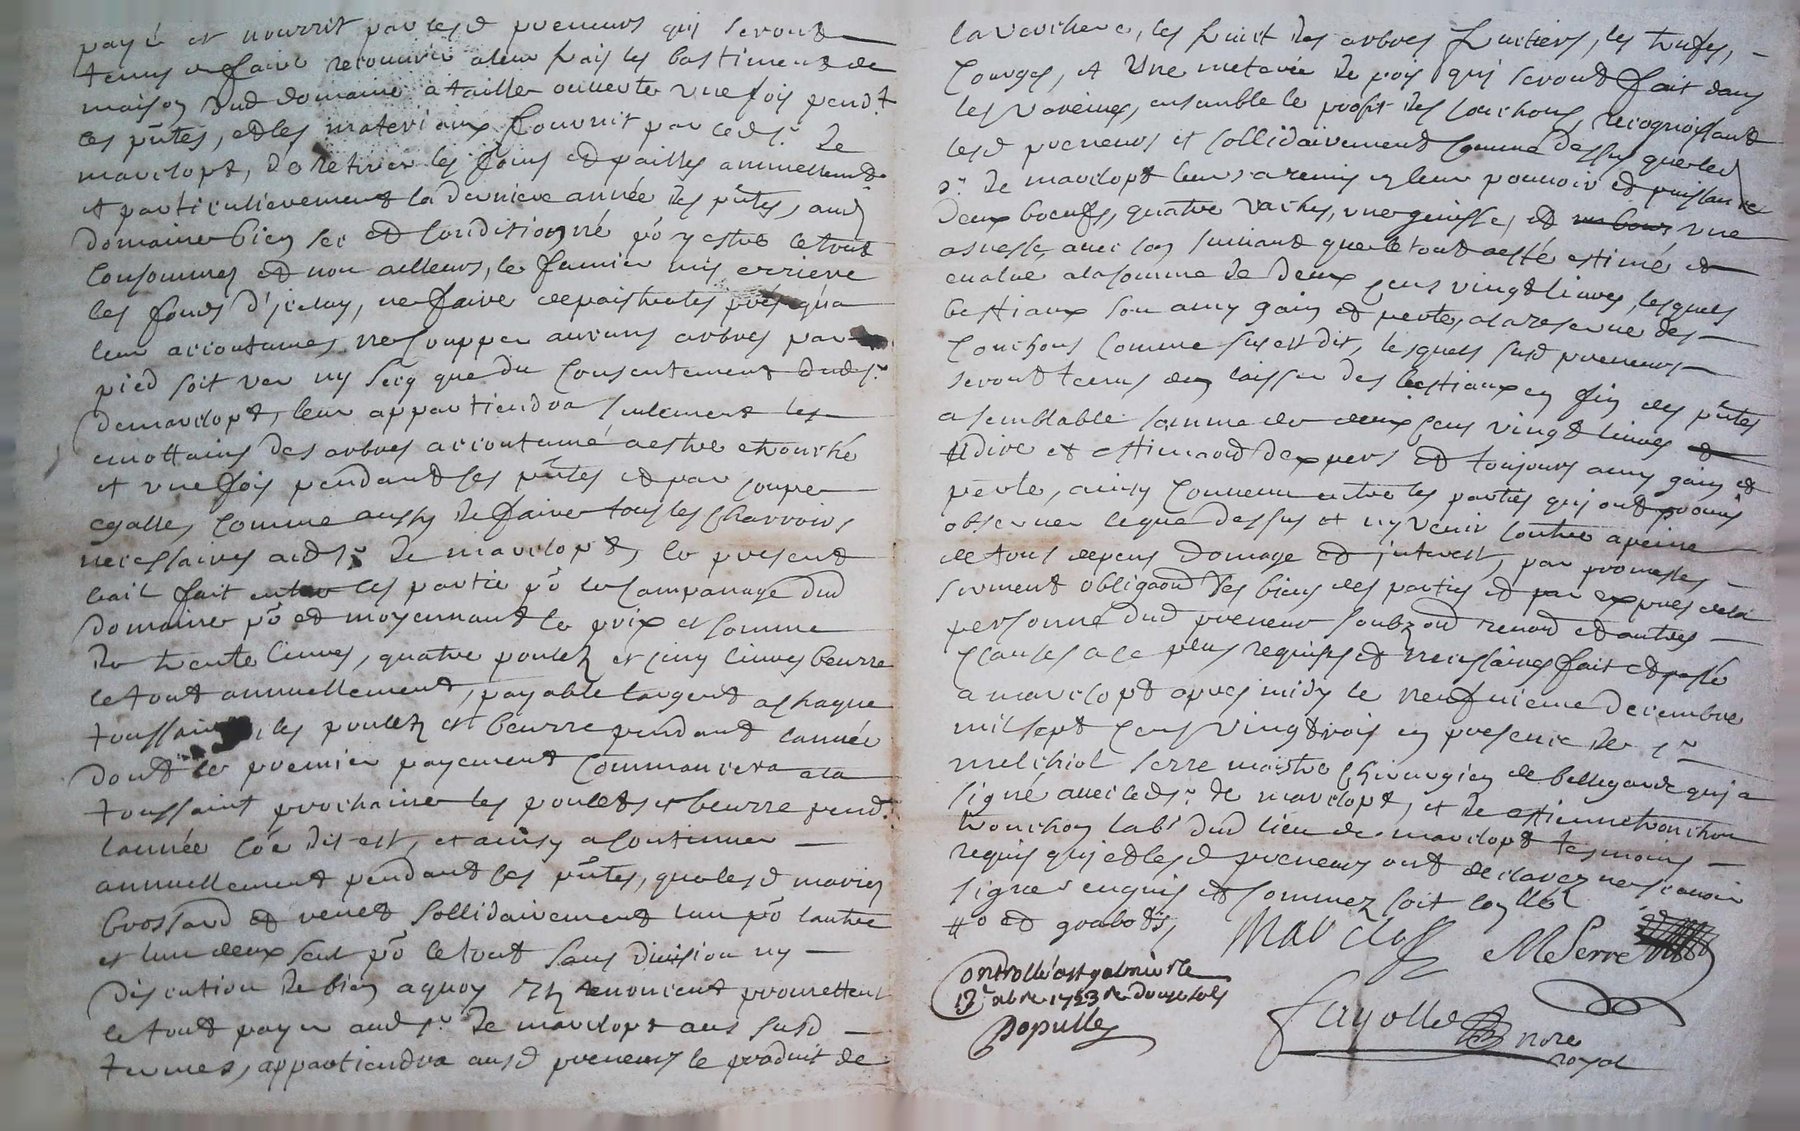 payé et nourrit par lesd preneurs qui seront
tenus de faire recouvrir a leur frais les bastiments de
maison dud domaine a taille ouverte une fois pendt
ces pntes, et les materiaux fournit par ledsr de
mavilopt, de retirer les foins et pailles annuellement
et particulierement la derniere année des pntes, aud
domaine bien sec et conditionné po y estre le tout
consommés et non ailleurs, le fumier mis erriere
les fonds d'jceluy, ne faire depaistre les prés qua
leur accoutumés, ne coupper aucuns arbres par
pied soit ver ny secq que du consentement dudsr
de mavilopt, leur appartiendra seulement les
emottains des arbres accoutumé a estre etronché
et une fois pendant ces pntes et par coupe
egalle, comme aussy de faire tous les charrois
necessaires audsr de mavilopt, le present
bail fait entre les partie po le campanage dud
domaine po et moyennant le prix et somme
de trente livres, quatre poulez et cinq livres beurre
le tout annuellement, payable largent a chaque
toussaint, les poulez et beurre pendant lannée
dont le premier payement commancera a la
toussaint prochaine les poulets et beurre pend.
lannée coe dit est, et ainsy a continuer
annuellement pendant ces pntes, que lesd mariez
brossard et venet sollidairement lun po lautre
et lun deux seul po le tout sans division ny
discution de bien a quoy ilz renoncent promettent
le tout payer audsr de mavilopt aus susd
termes, appartiendra ausd preneurs le produit de
la vercherie, les fruit des arbres fruitiers, les trufes,
courges, et une meterée de pois qui seront fait dans
les varennes, ensemble le profit des couchons, recognoissant
lesd preneurs et sollidairement comme dessus que led
sr de mavilopt leurs a remis en leur pouvoir et puissance
deux boeufs, quatre vaches, une genisse, et une
asnesse avec son suivant que le tout a esté estimé et
evalué a la somme de deux cens vingt livres, lesquels
bestiaux son a my gain et perte, a la reserve des
couchons comme sus est dit, lesquels susd preneurs
seront tenus den laisser des bestiaux en fin des pntes
a semblable somme de deux cens vingt livres
a dire et estimaon dexpers et toujours a my gain et
perte, ainsy convenu entre les parties qui ont promis
observer ce que dessus et ny venir contre a peine
de tous depens domage et jnterest, par promesses
serment obligaon des biens des parties et par expres de la
personne dud preneur soubzon renon et autres
clauses a ce plus requises et necessaires fait et passé
a mavilopt apres midy le neufvieme decembre
mil sept cens vingt trois en presence de sr
melchiol serre maistre chirurgien de bellegarde qui a
signé avec ledsr de mavilopt, et de estienne tronchon
labr dud lieu de mavilopt tesmoins
requis qui et lesd preneurs ont declarez ne scavoir
signer enquis et sommez soit conllez
Mavilopt MSerre
Controllé a st galmier le
13e xbre 1723 Re douze sols
Populle
Fayolle nore
royal